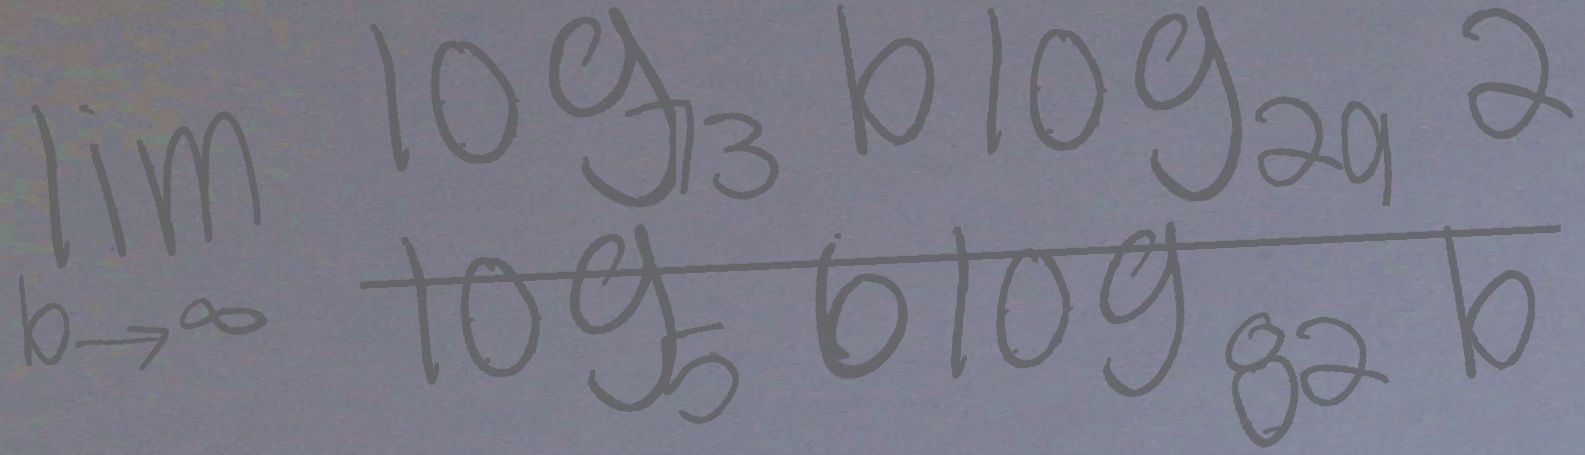 \lim_{b \to \infty} \frac{\log_{73} b \log_{29} 2}{\log_{5} 6 \log_{82} b}